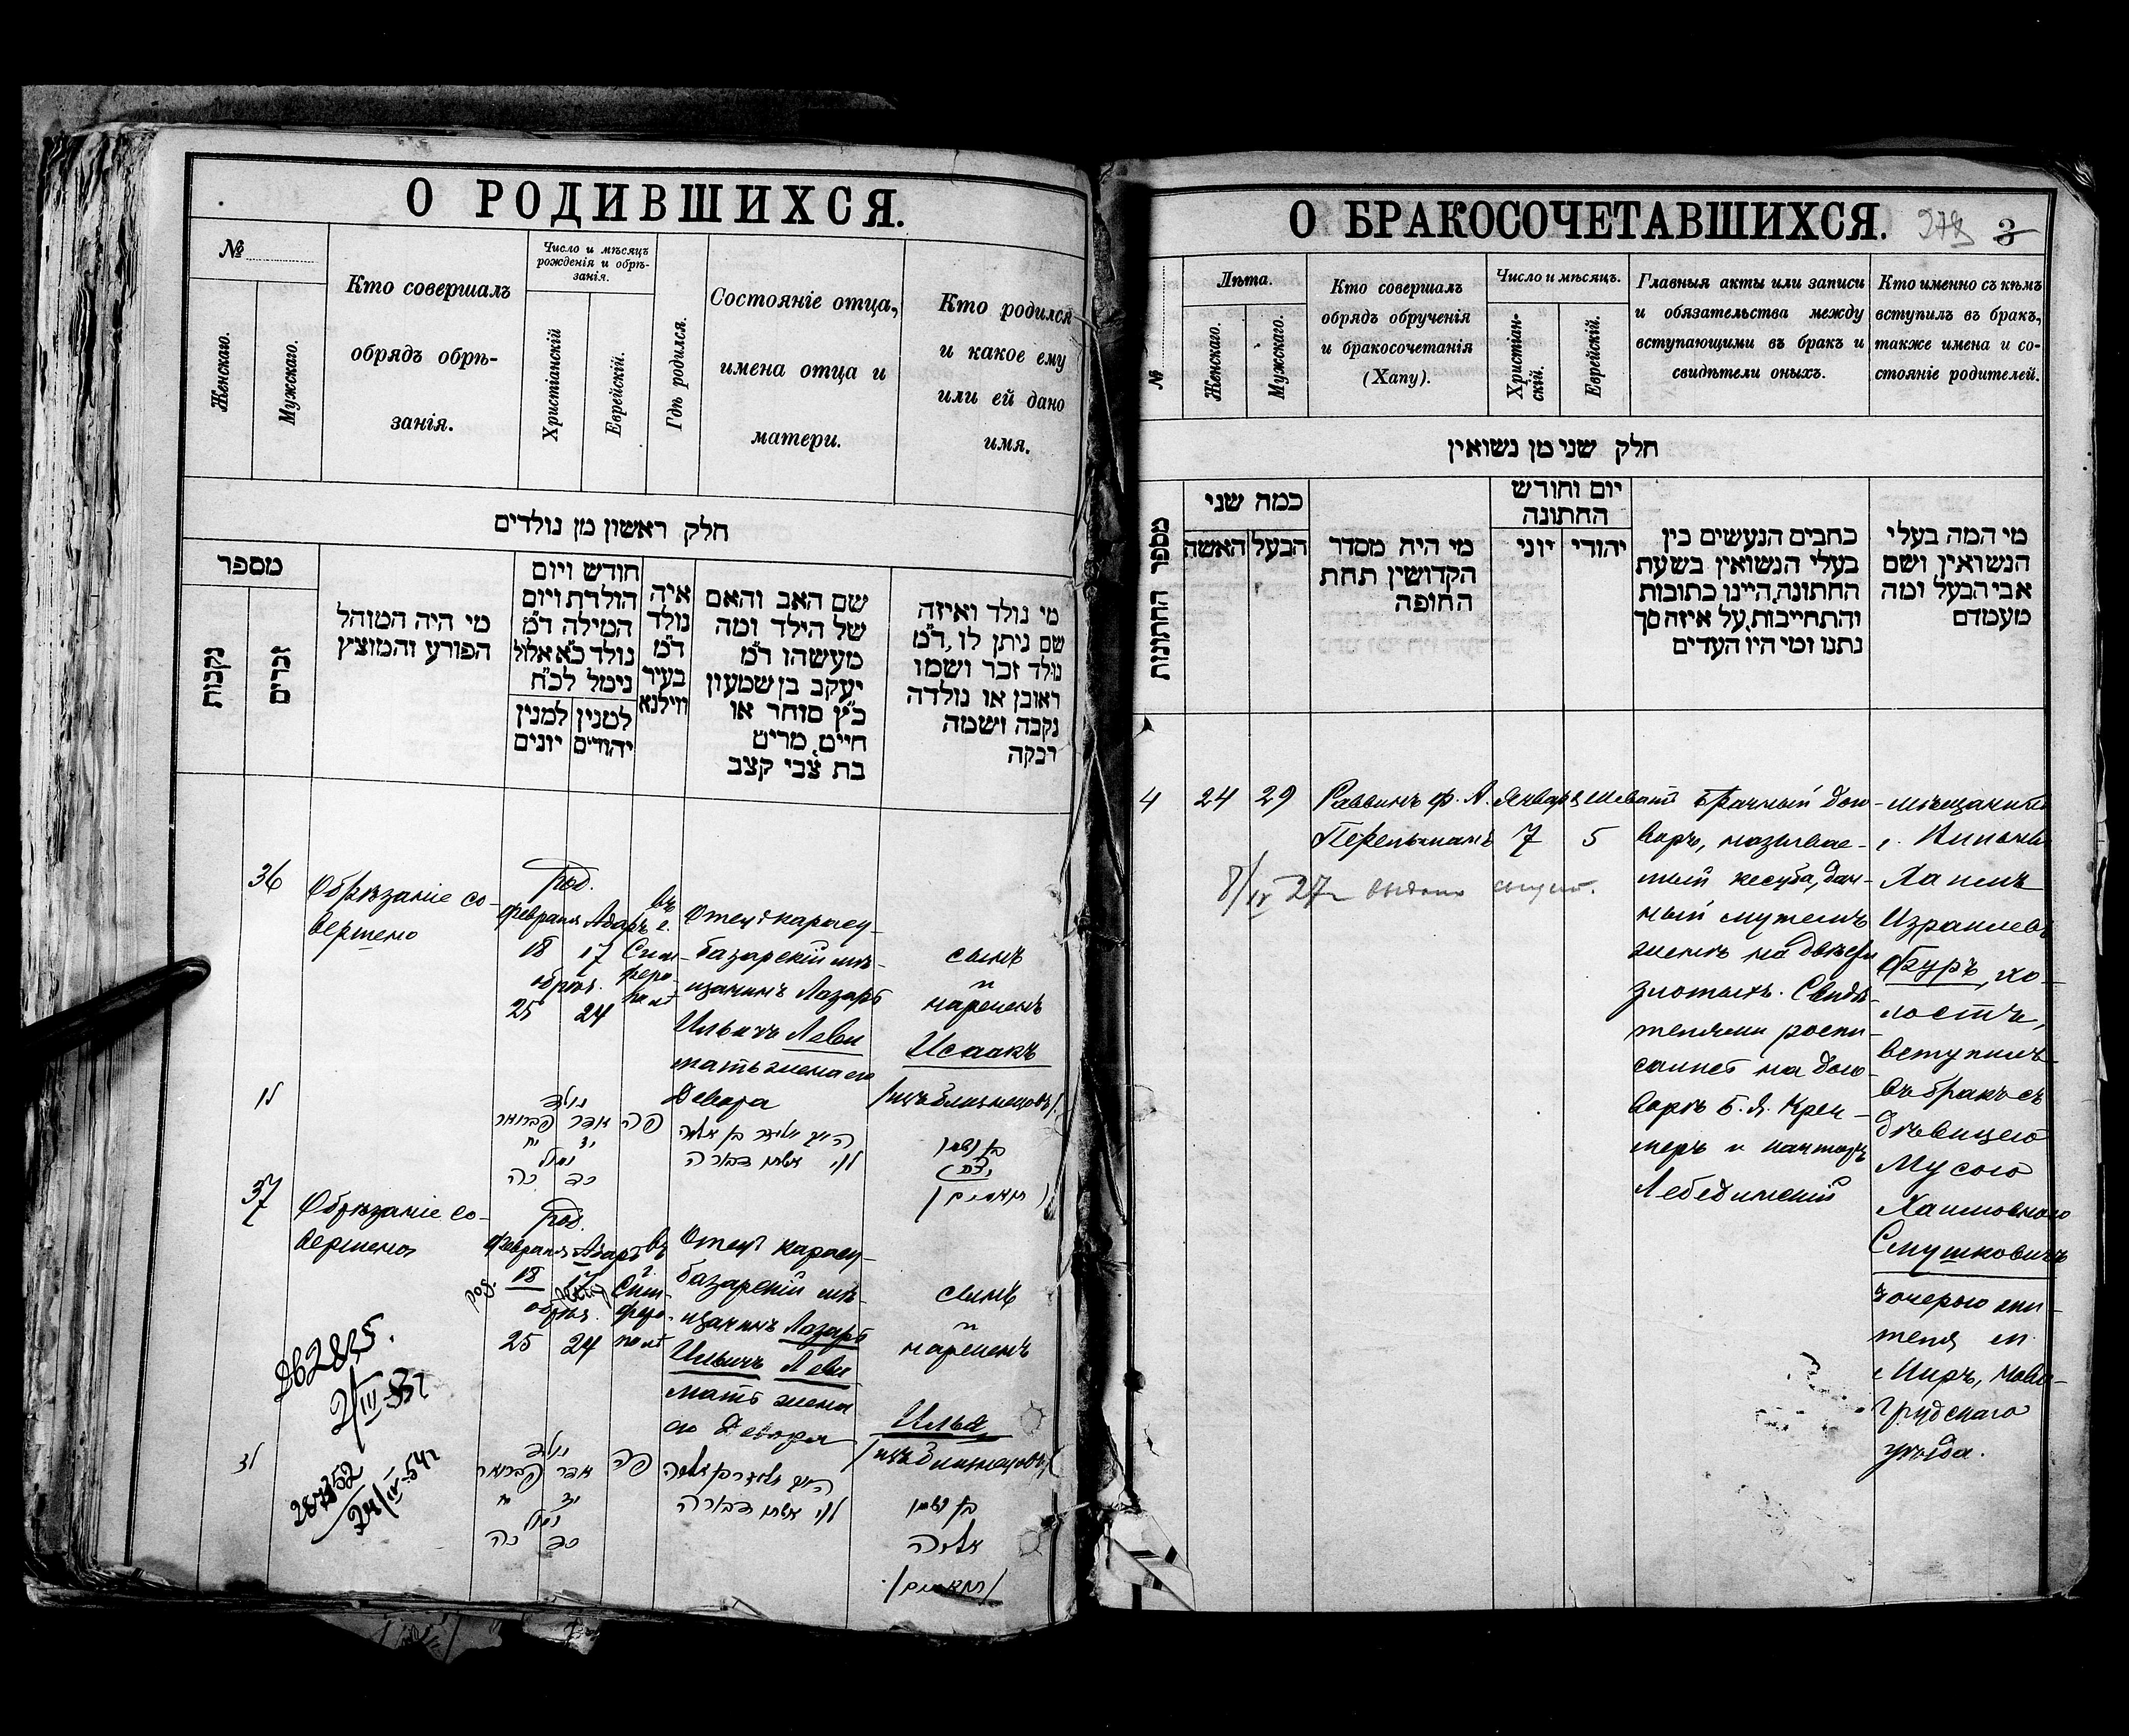 О РОДИВШИХСЯ.
№
Женскаго.
Мужскаго.
Кто совершалъ
обрядъ обрѣ-
занія.
Число и мѣсяцъ
рожденія и обрѣ-
занія.
Христіанскій
Еврейскій.
Гдѣ родился.
Состояніе отца,
имена отца и
матери.
Кто родился
и какое ему
или ей дано
имя.
חלק ראשון מן נולדים
מספר
נקבות
זכרים
מי היה המוהל
הפורע והמוצץ
חודש ויום
הולדת ויום
המילה ד״מ
נולד כ״א אלול
נימל לכ״ח
למנין
יהודים
למנין
יונים
איה
נולד
ד״מ
בעיר
ווילנא
שם האב והאם
של הילד ומה
מעשהו ד״מ
יעקב בן שמעון
כ״ץ סוחר או
חייט, מרים
בת צבי קצב
מי נולד ואיזה
שם ניתן לו, ד״מ
נולד זכר ושמו
ראובן או נולדה
נקבה ושמה
רבקה
36
Обрѣзаніе со-
вершено
Род.
Февраля Адаръ
18 17
обрѣз.
25 24
въ
г.
Сим-
феро-
полѣ
Отецъ карасу-
базарскій мѣ-
щанинъ Лазарь
Ильичъ Леви
мать жена его
Девора
сынъ
нареченъ
Исаакъ
/изъ близнецовъ/.
לו
נולד
אדר פברואר
יז יח
נימול
כד כה
פה
לוי אשתו דבורה
בן ושמו
יצחק
/תאומים/
37
Обрѣзаніе со-
вершено
Род.
Февраля Адаръ
род. 18 17
обрѣз.
25 24
въ
г.
Сим-
феро-
полѣ
Отецъ карасу-
базарскій мѣ-
щанинъ Лазарь
Ильичъ Леви
мать жена
его Девора
сынъ
нареченъ
Илья
/изъ близнецовъ/
לז
נולד
אדר פברואר
יז יח
נימול
כד כה
פה
לוי אשתו דבורה
בן ושמו
אליה
/תאומים/
О БРАКОСОЧЕТАВШИХСЯ.
3
№
Лѣта.
Женскаго.
Мужскаго.
Кто совершалъ
обрядъ обрученія
и бракосочетанія
(Хапу).
Число и мѣсяцъ.
Христіан-
скій.
Еврейскій.
Главныя акты или записи
и обязательства между
вступающими въ бракъ и
свидѣтели оныхъ.
Кто именно съ кѣмъ
вступилъ въ бракъ,
также имена и со-
стояніе родителей.
חלק שני מן נשואין
מספר החתונות
כמה שני
האשה
הבעל
מי היה מסדר
הקדושין תחת
החופה
יום וחודש
החתונה
יוני
יהודי
כתבים הנעשים בין
בעלי הנשואין בשעת
החתונה, היינו כתובות
והתחייבות, על איזה סך
נתנו ומי היו העדים
מי המה בעלי
הנשואין ושם
אבי הבעל ומה
מעמדם
4 24 29
Раввинъ Ф. А.
Перельманъ
Январь
7
Шеватъ
5
8/IV 27
Брачный дого-
воръ, называе-
мый кесуба, дан-
ный мужемъ
женѣ на двѣсти
злотыхъ. Свидѣ-
телями роспи-
сались на дого-
ворѣ Б. Я. Крей-
меръ и канторъ
Лебединскій
мѣщанинъ
г. Вильны
Хаимъ
Израилевъ
Фуръ, хо-
лостъ,
вступилъ
въ бракъ съ
дѣвицею
Мусою
Хаимовною
Смушковичъ
дочерью жи-
теля м.
Миръ, Ново-
грудскаго
уѣзда.